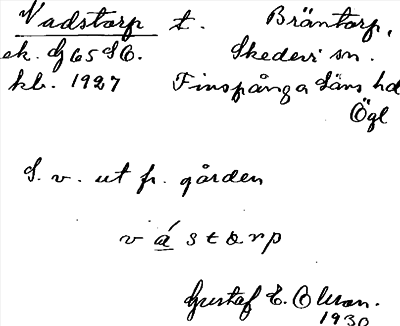 Vadstorp t. Bräntorp,
ek. Gj 65 SO. Skedevi sn.
kb. 1927 Finspånga läns hd
Ögl
S. v. ut fr. gården
v á s t o r p
Gustaf E. Olson.
1930